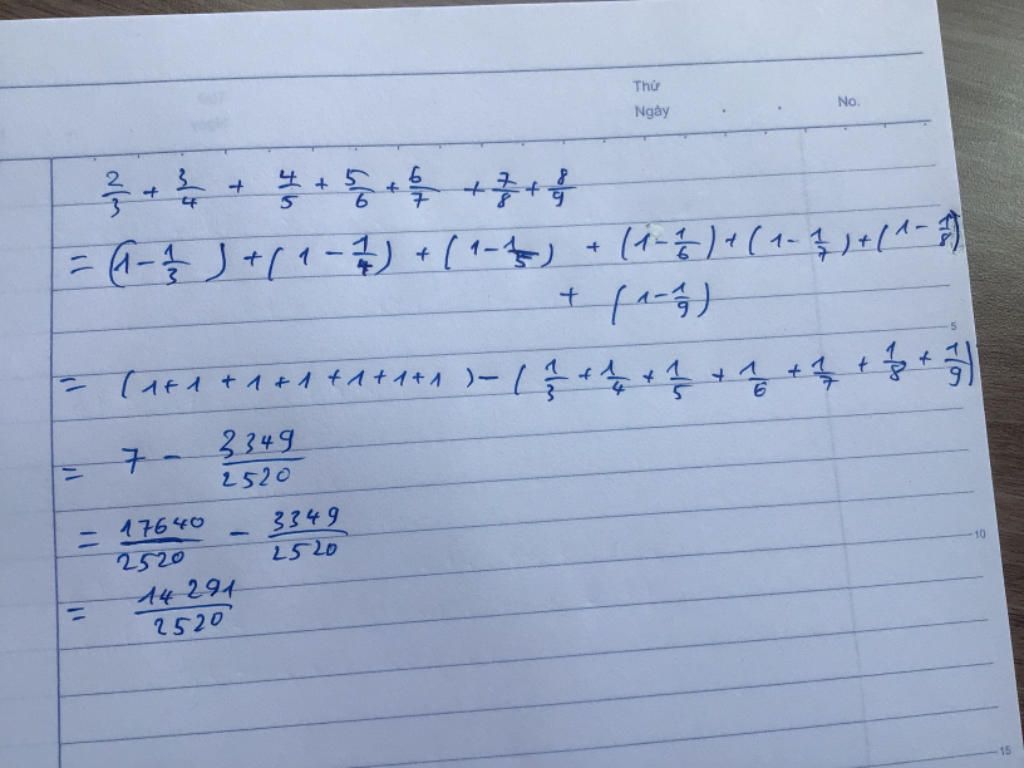 Thứ
Ngày . . No.
2/3 + 3/4 + 4/5 + 5/6 + 6/7 + 7/8 + 8/9
= (1 - 1/3) + (1 - 1/4) + (1 - 1/5) + (1 - 1/6) + (1 - 1/7) + (1 - 1/8)
+ (1 - 1/9)
5
= (1 + 1 + 1 + 1 + 1 + 1 + 1) - (1/3 + 1/4 + 1/5 + 1/6 + 1/7 + 1/8 + 1/9)
= 7 - 3349/2520
= 17640/2520 - 3349/2520
10
= 14291/2520
15